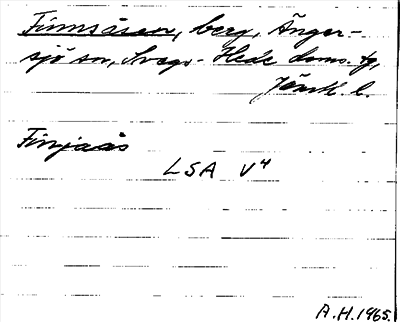 Finnsåsen, berg, Änger-
sjö sn, Svegs-Hede doms. tg,
Jämtl. l.
Finjaås
LSA V4
A.H.1965.